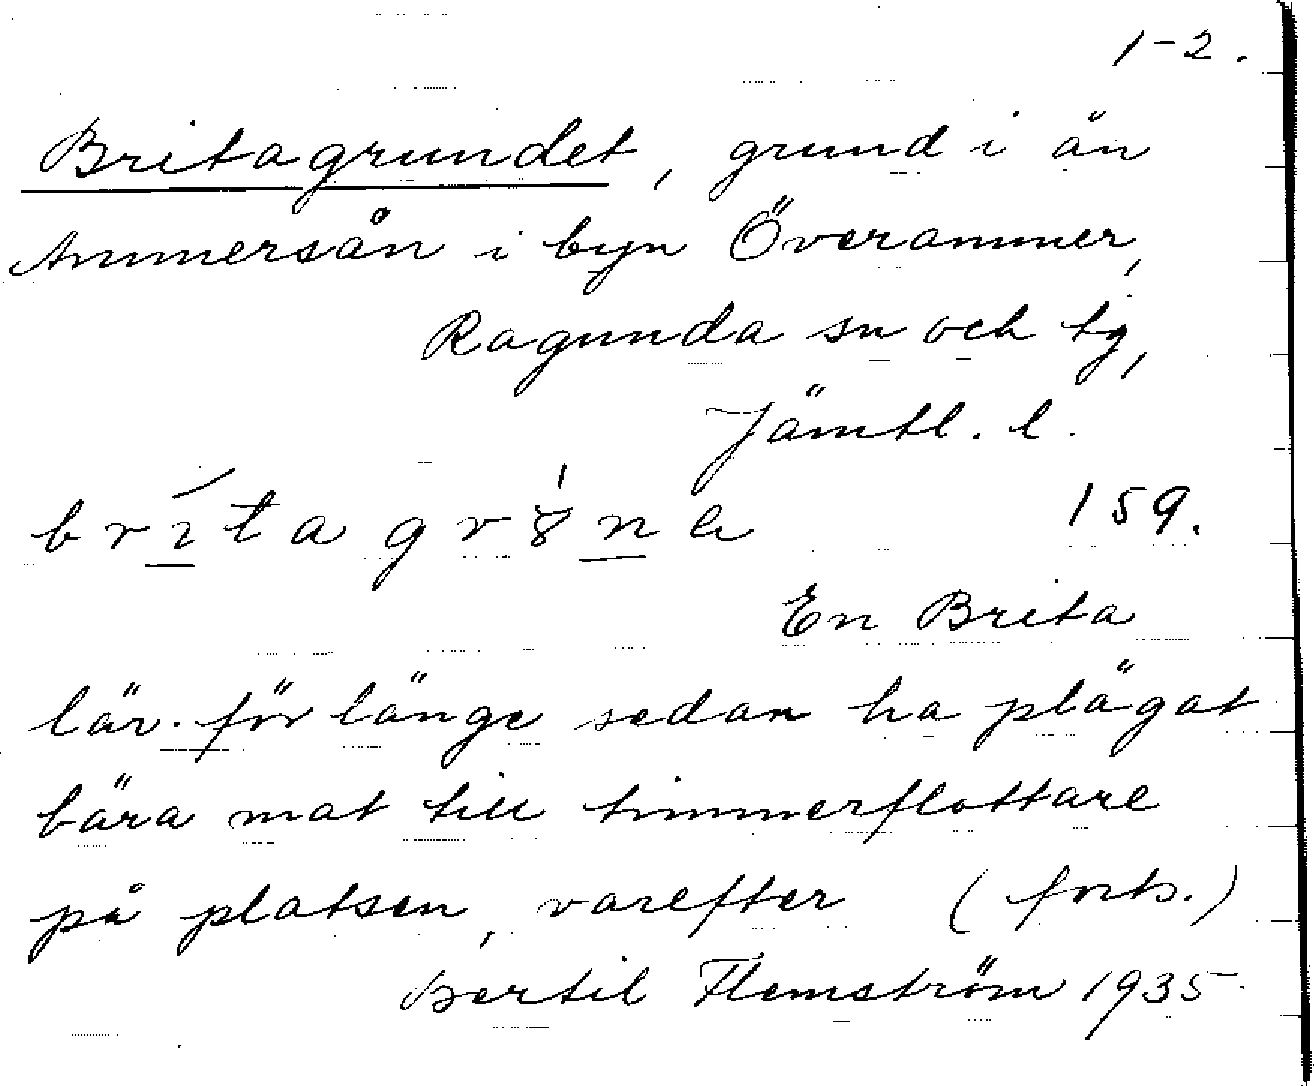 1-2.
Britagrundet, grund i ån
Ammersån i byn Överammer,
Ragunda sn och tg,
Jämtl. l.
britagr8na 159.
En Brita
lär för länge sedan ha plägat
bära mat till timmerflottare
på platsen, varefter (forts.)
Bertil Flemström 1935